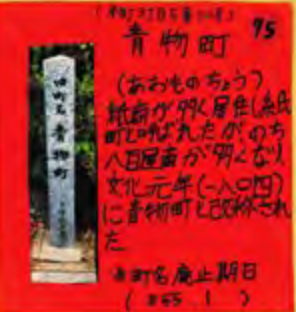 青物町
75
旧町名 青物町
(あおものちょう)
紙商が多く居住し紙氏
町と呼ばれたが、のち
八百屋商が多くなり
文化元年(一八〇四)
に青物町と改称され
た
※町名廃止期日
(S55.1)